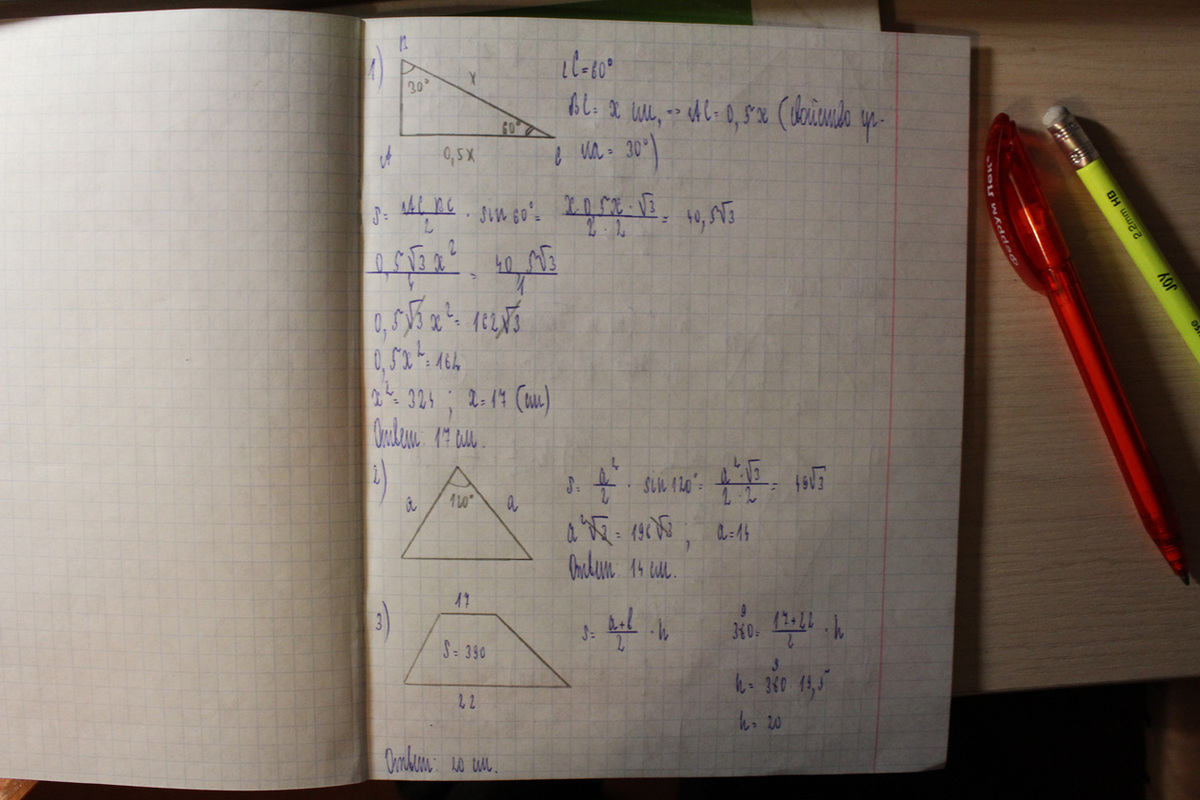 1)
B
30°
x
60°
A
0,5x
C
∠C=60°
BC= x см, => AC= 0,5x (свойство уг-
ла = 30°)
S= AC·BC/2 · sin 60°= x·0,5x·√3/2·2 = 40,5√3
0,5√3x²/4 = 40,5√3/1
0,5√3x²= 162√3
0,5x²=162
x²= 324 ; x=17 (см)
Ответ: 17 см.
2)
a
120°
a
S= a²/2 · sin120°= a²·√3/2·2 = 49√3
a²√3 = 196√3 ; a=14
Ответ: 14 см.
3)
17
S= 390
22
S= a+b/2 · h
390= 17+22/2 · h
h= 390 : 19,5
h= 20
Ответ: 20 см.
2.2mm HB
JOY